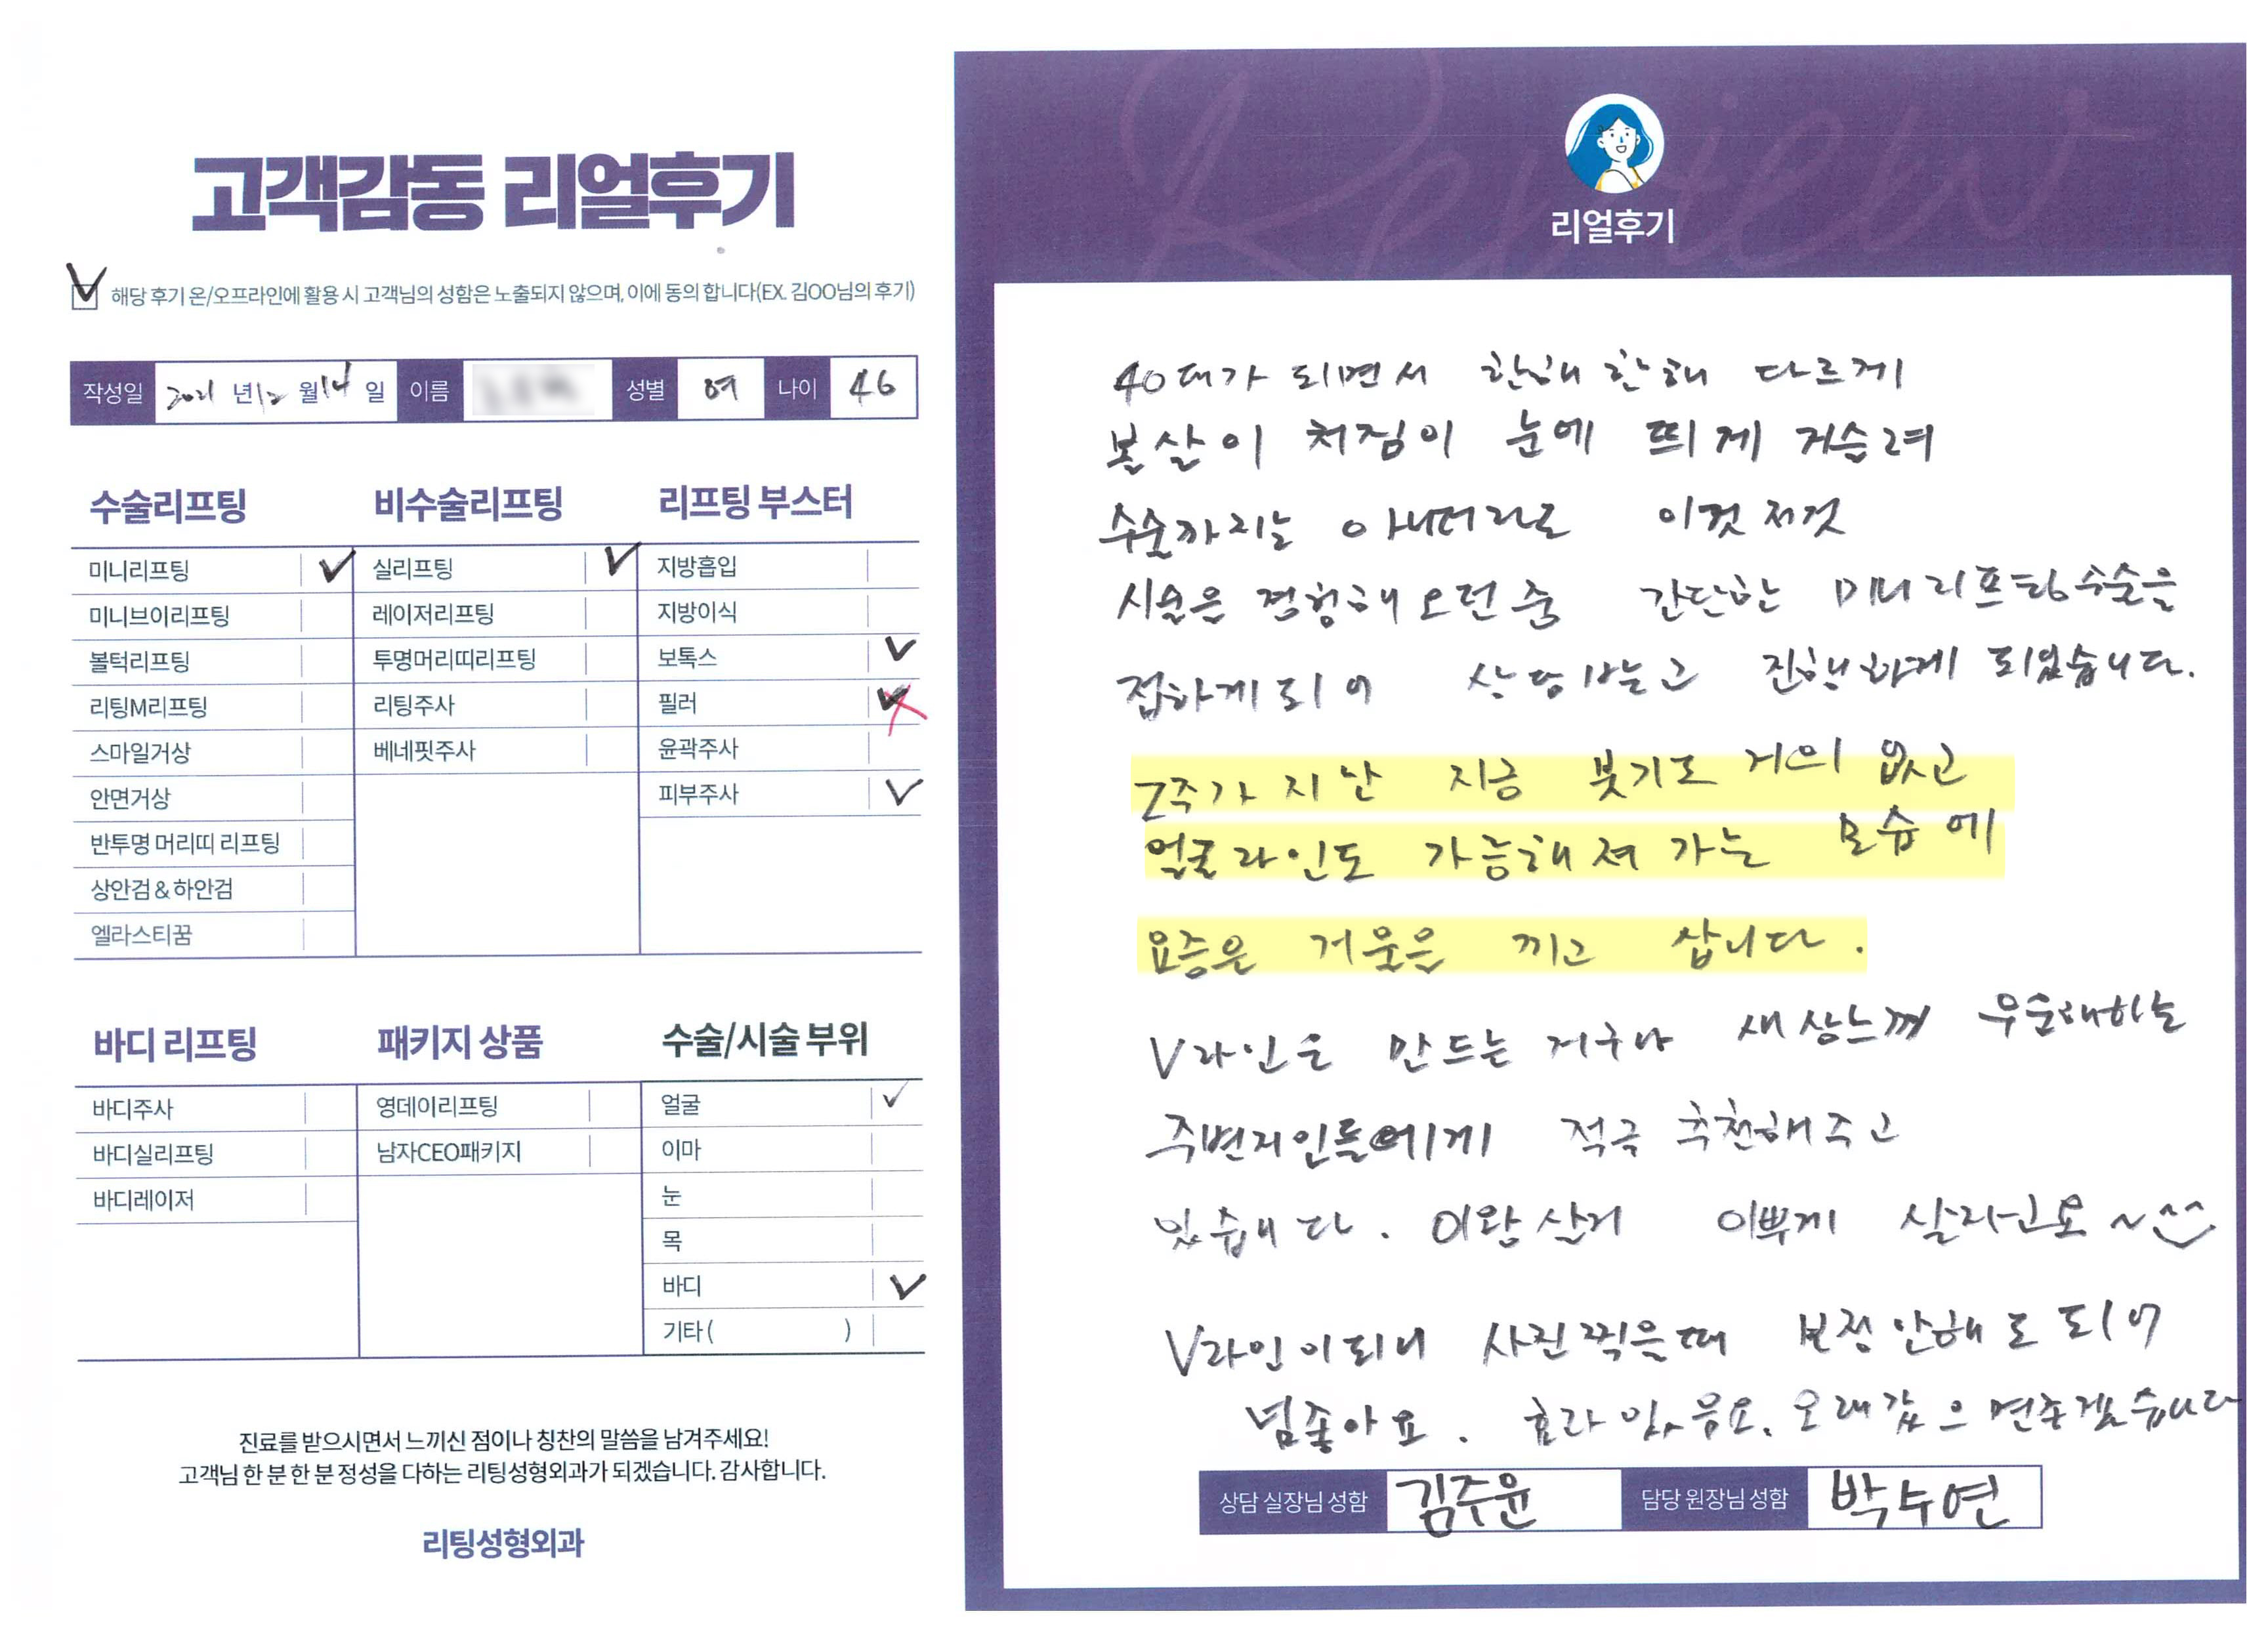 고객감동 리얼후기
해당 후기 온/오프라인에 활용 시 고객님의 성함은 노출되지 않으며, 이에 동의 합니다(EX. 김OO님의 후기)
작성일 2021 년 12 월 14 일 이름 성별 여 나이 46
수술리프팅 비수술리프팅 리프팅 부스터
미니리프팅 실리프팅 지방흡입
미니브이리프팅 레이저리프팅 지방이식
볼턱리프팅 투명머리띠리프팅 보톡스
리팅M리프팅 리팅주사 필러
스마일거상 베네핏주사 윤곽주사
안면거상 피부주사
반투명 머리띠 리프팅
상안검 & 하안검
엘라스티꿈
바디 리프팅 패키지 상품 수술/시술 부위
바디주사 영데이리프팅 얼굴
바디실리프팅 남자CEO패키지 이마
바디레이저 눈
목
바디
기타 ( )
진료를 받으시면서 느끼신 점이나 칭찬의 말씀을 남겨주세요!
고객님 한 분 한 분 정성을 다하는 리팅성형외과가 되겠습니다. 감사합니다.
리팅성형외과
Review
리얼후기
40대가 되면서 한해 한해 다르게
볼살이 처짐이 눈에 띄게 거슬려
수술까지는 아니더라도 이것 저것
시술은 경험해오던 중 간단한 미니리프팅수술을
접하게 되어 상담받고 진행하게 되었습니다.
2주가 지난 지금 붓기도 거의 없고
얼굴라인도 가능해져 가는 모습에
요즘은 거울은 끼고 삽니다.
V라인은 만드는 거구나 새삼느껴
주변지인들에게 적극 추천해주고
있습니다. 이왕 산거 이쁘게 살라고요~^^
V라인이 되니 사진찍을때 보정안해도 되어
넘좋아요. 효과 있음요. 오래갔으면좋겠습니다
상담 실장님 성함 김주윤 담당 원장님 성함 박수연